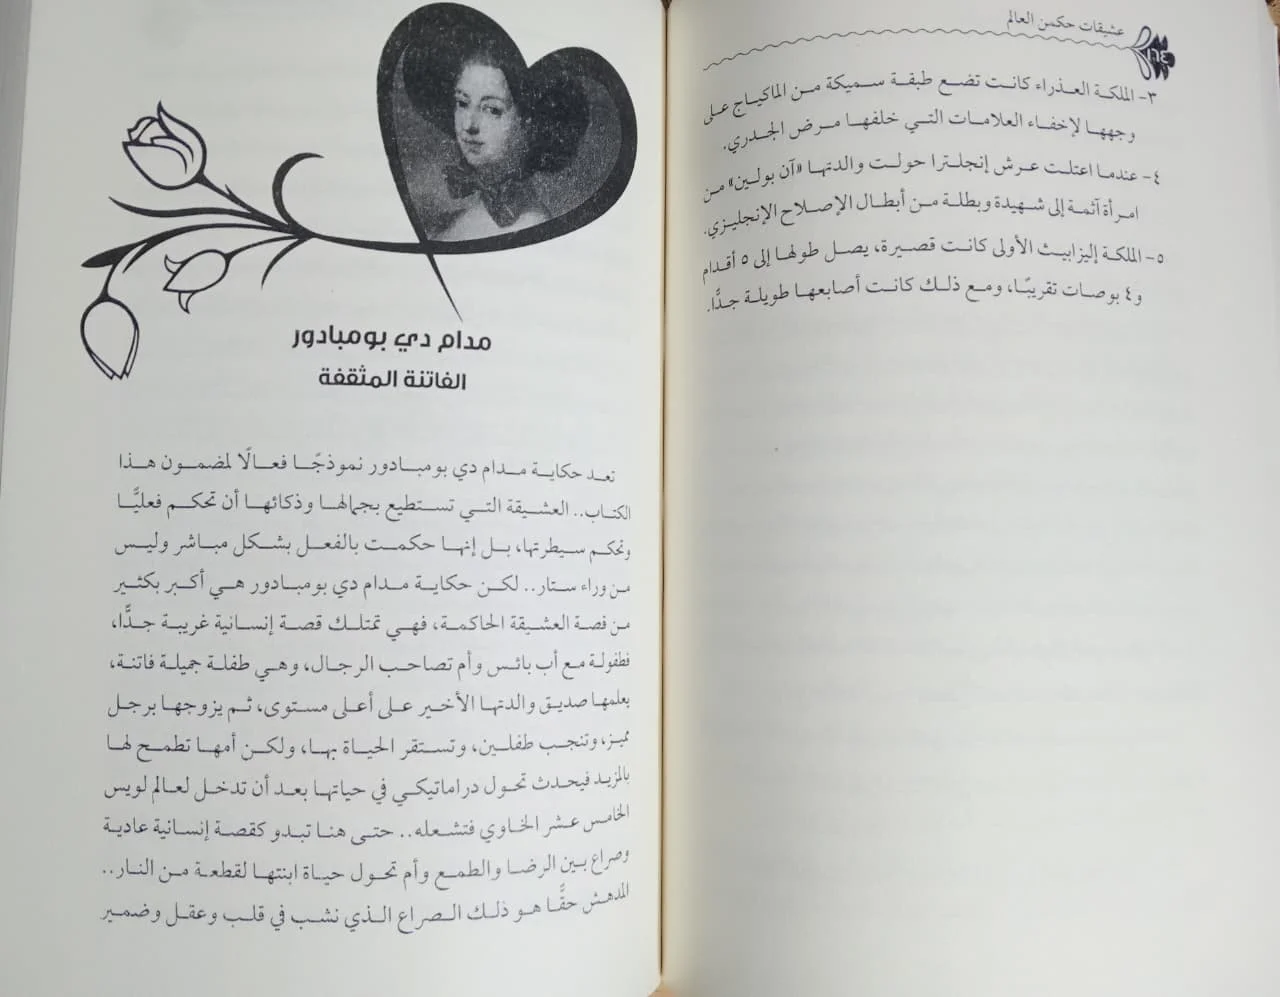 عشيقات حكمن العالم
١٦٤
٣- الملكة العذراء كانت تضع طبقة سميكة من الماكياج على
وجهها لإخفاء العلامات التي خلفها مرض الجدري.
٤- عندما اعتلت عرش إنجلترا حولت والدتها «آن بولين» من
امرأة آثمة إلى شهيدة وبطلة من أبطال الإصلاح الإنجليزي.
٥- الملكة إليزابيث الأولى كانت قصيرة، يصل طولها إلى ٥ أقدام
و٤ بوصات تقريبًا، ومع ذلك كانت أصابعها طويلة جدًّا.
مدام دي بومبادور
الفاتنة المثقفة
تعد حكاية مدام دي بومبادور نموذجًا فعالًا لمضمون هذا
الكتاب.. العشيقة التي تستطيع بجمالها وذكائها أن تحكم فعليًّا
وتحكم سيطرتها، بل إنها حكمت بالفعل بشكل مباشر وليس
من وراء ستار.. لكن حكاية مدام دي بومبادور هي أكبر بكثير
من قصة العشيقة الحاكمة، فهي تمتلك قصة إنسانية غريبة جدًّا،
فطفولة مع أب بائس وأم تصاحب الرجال، وهي طفلة جميلة فاتنة،
يعلمها صديق والدتها الأخير على أعلى مستوى، ثم يزوجها برجل
مميز، وتنجب طفلين، وتستقر الحياة بها، ولكن أمها تطمح لها
بالمزيد فيحدث تحول دراماتيكي في حياتها بعد أن تدخل لعالم لويس
الخامس عشر الخاوي فتشعله.. حتى هنا تبدو كقصة إنسانية عادية
وصراع بين الرضا والطمع وأم تحول حياة ابنتها لقطعة من النار..
المدهش حقًّا هو ذلك الصراع الذي نشب في قلب وعقل وضمير